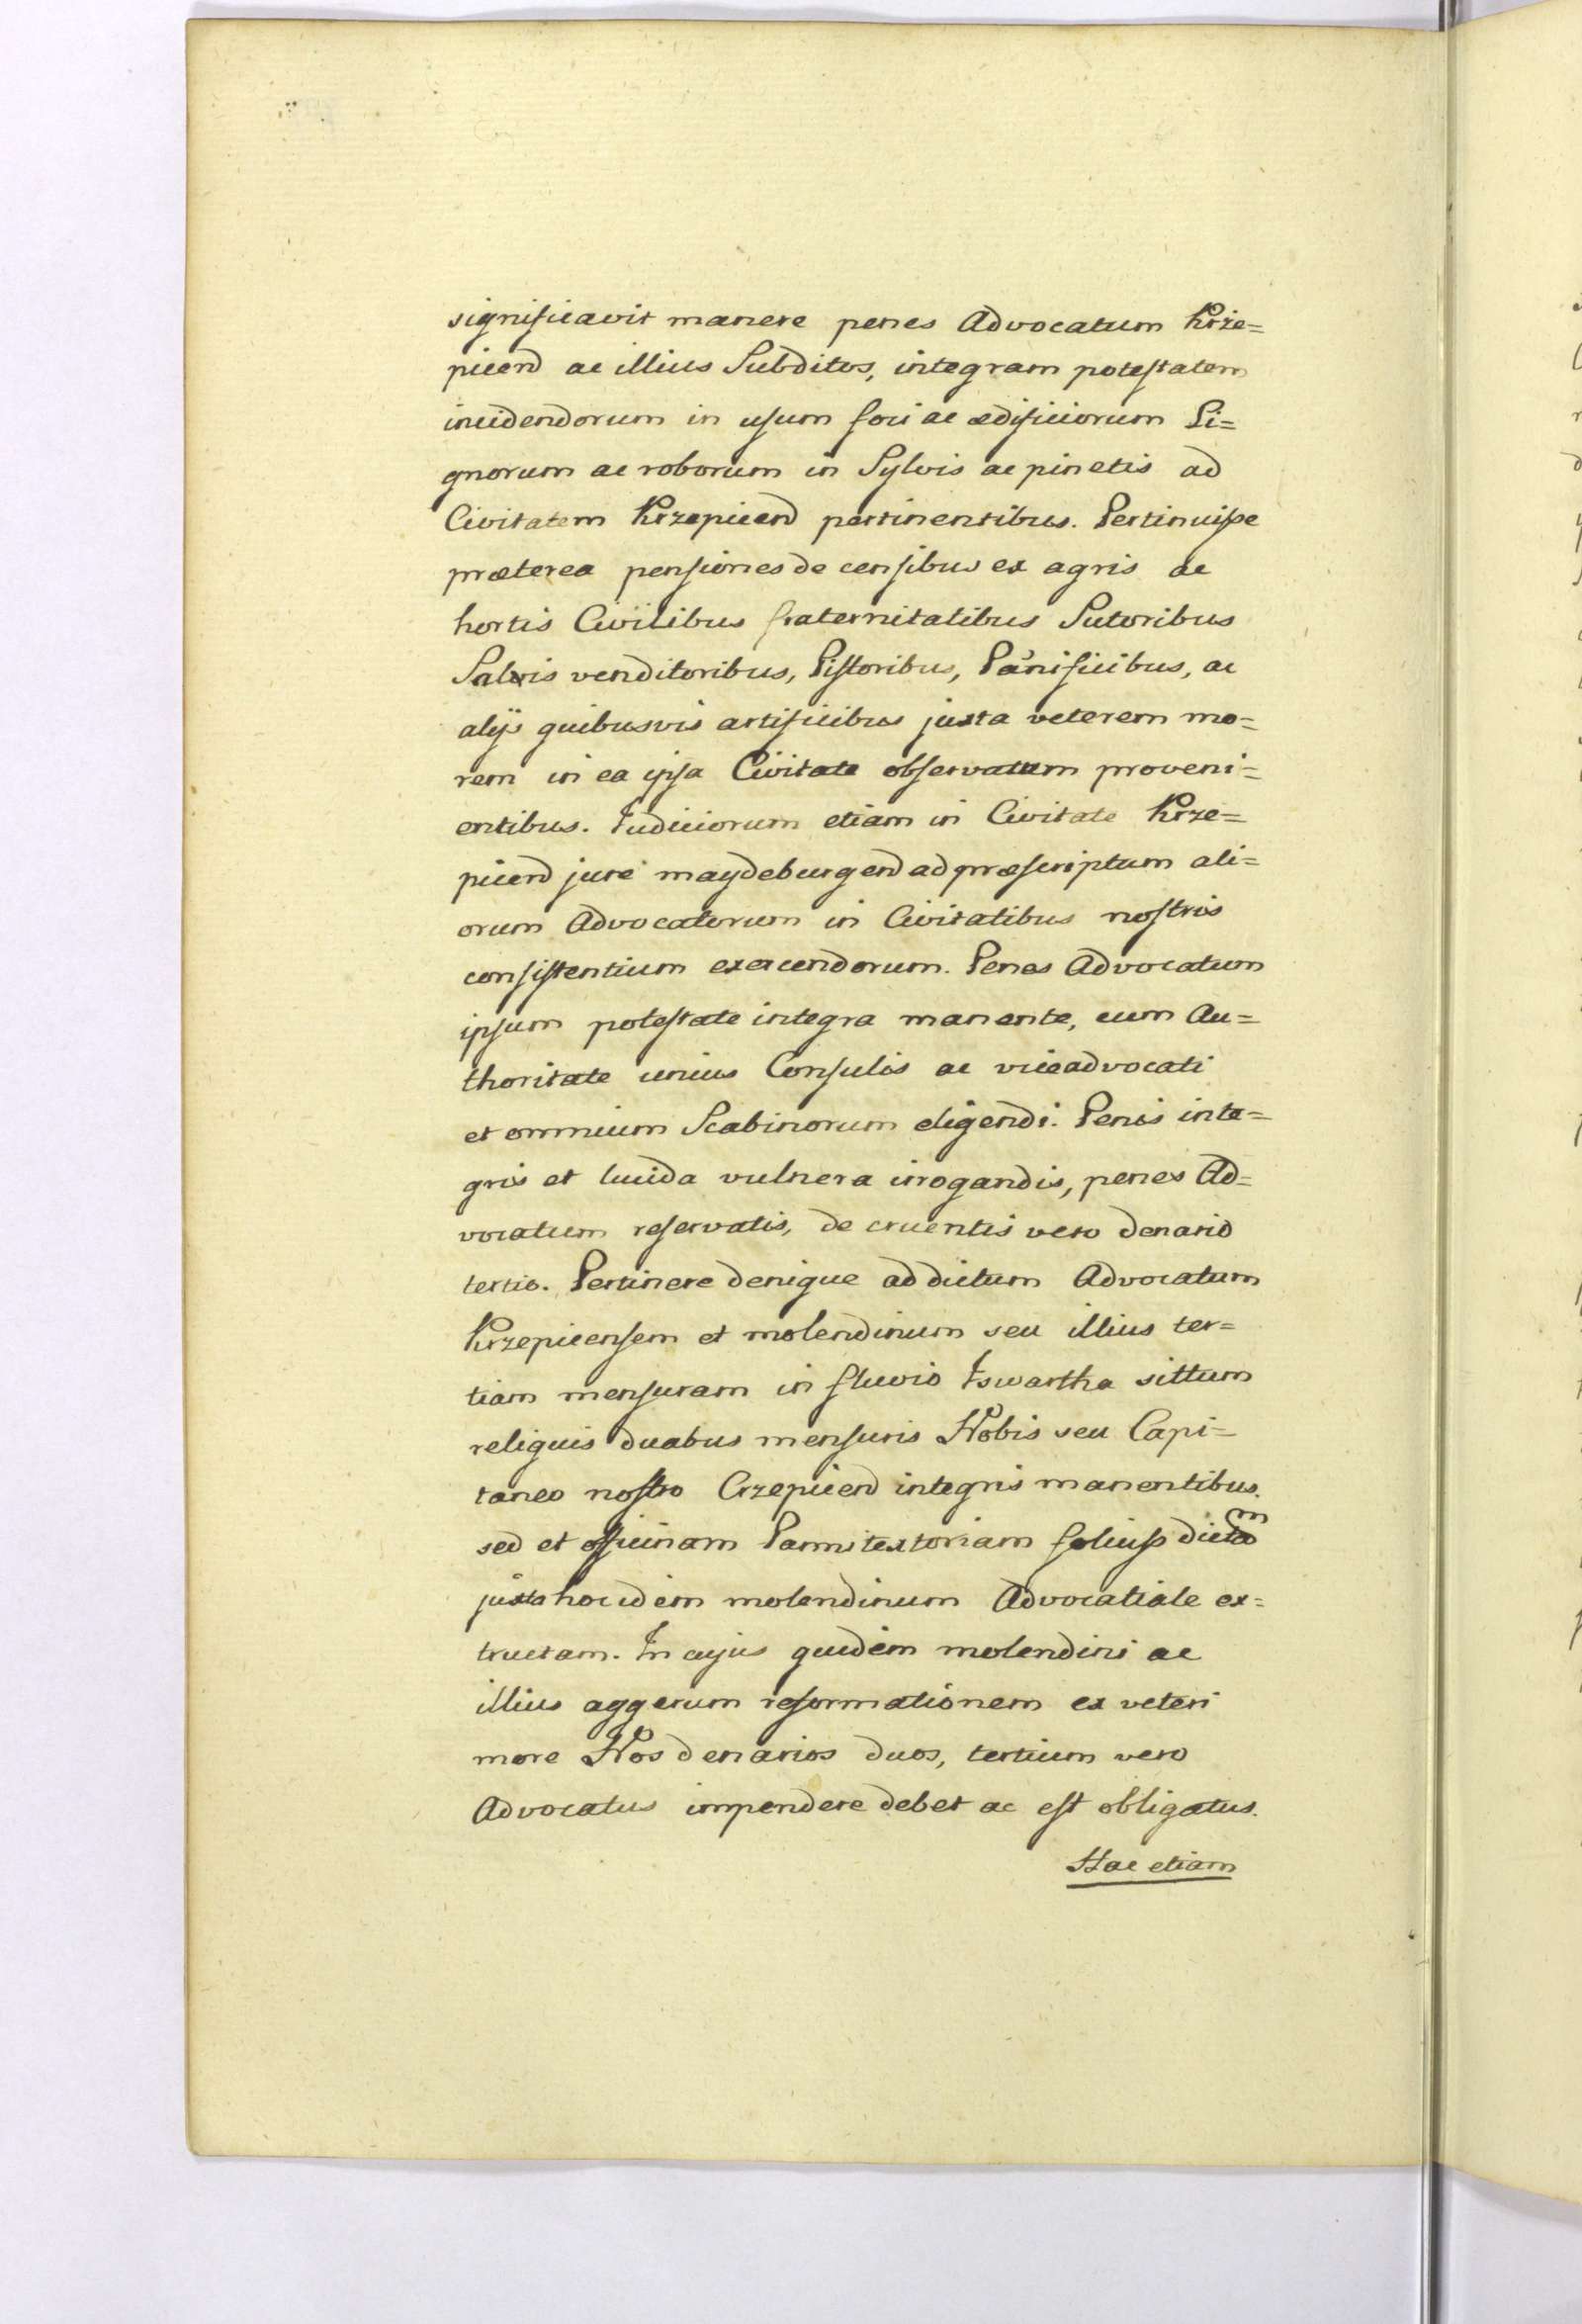 significavit manere penes Advocatum Krze=
picend ac illius Subditos, integram potestatem
incidendorum in usum foci ac ædificiorum Li=
gnorum ac roborum in Sylvis ac pinetis ad
Civitatem Krzepicend pertinentibus. Pertinuisse
præterea pensiones de censibus ex agris ac
hortis Civilibus fraternitatibus Sutoribus
Salis venditoribus, Pistoribus, Panificibus, ac
alijs quibusvis artificibus juxta veterem mo=
rem in ea ipsa Civitate observatum proveni=
entibus. Judiciorum etiam in Civitate Krze=
picend jure maydeburgend ad præscriptum ali=
orum Advocatorum in Civitatibus nostris
consistentium exercendorum. Penes Advocatum
ipsum potestate integra manente, cum Au=
thoritate unius Consulis ac viceadvocati
et omnium Scabinorum eligendi. Penis inte=
gris et lucida vulnera irrogandis, penes Ad=
vocatum reservatis, de cruentis vero denario
tertio. Pertinere denique ad dictum Advocatum
Krzepicensem et molendinum seu illius ter=
tiam mensuram in fluvio Iswartha sittum
reliquis duabus mensuris Nobis seu Capi=
taneo nostro Crzepicend integris manentibus.
sed et officinam Pannitextoriam foliuss dictam
juxta hocidem molendinum Advocatiale ex=
tructam. In cujus quidem molendini ac
illius aggerum reformationem ex veteri
more Nos denarios duos, tertium vero
Advocatus impendere debet ac est obligatus.
Hac etiam